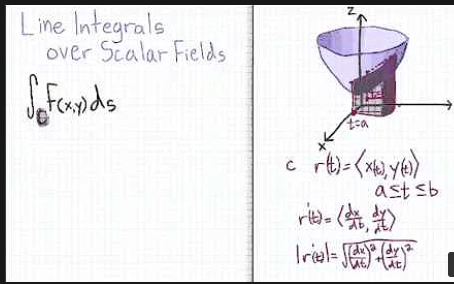 Line Integrals
over Scalar Fields
∫_C F(x,y) ds
z
t=a
x
c r(t) = ⟨x(t), y(t)⟩
a ≤ t ≤ b
r'(t) = ⟨dx/dt, dy/dt⟩
|r'(t)| = √((dx/dt)² + (dy/dt)²)